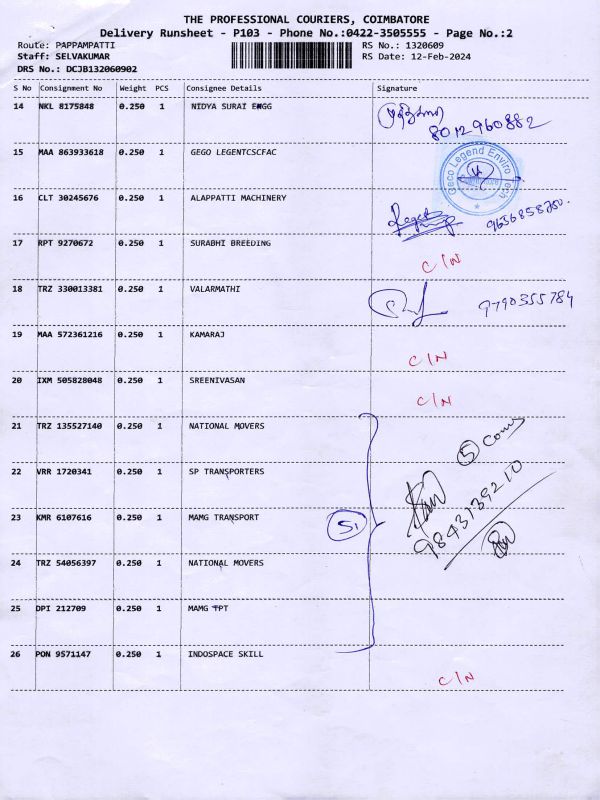 THE PROFESSIONAL COURIERS, COIMBATORE
Delivery Runsheet - P103 - Phone No.:0422-3505555 - Page No.:2
Route: PAPPAMPATTI RS No.: 1320609
Staff: SELVAKUMAR RS Date: 12-Feb-2024
DRS No.: DCJB132060902
S No Consignment No Weight PCS Consignee Details Signature
14 NKL 8175848 0.250 1 NIDYA SURAI ENGG
8012960882
15 MAA 863933618 0.250 1 GEGO LEGENTCSCFAC
Geco Legend Enviro Tech
16 CLT 30245676 0.250 1 ALAPPATTI MACHINERY
9636858750
17 RPT 9270672 0.250 1 SURABHI BREEDING
C/N
18 TRZ 330013381 0.250 1 VALARMATHI
9790355784
19 MAA 572361216 0.250 1 KAMARAJ
C/N
20 IXM 505828048 0.250 1 SREENIVASAN
C/N
21 TRZ 135527140 0.250 1 NATIONAL MOVERS
5
22 VRR 1720341 0.250 1 SP TRANSPORTERS
23 KMR 6107616 0.250 1 MAMG TRANSPORT
9843139210
24 TRZ 54056397 0.250 1 NATIONAL MOVERS
25 DPI 212709 0.250 1 MAMG TPT
26 PON 9571147 0.250 1 INDOSPACE SKILL
C/N